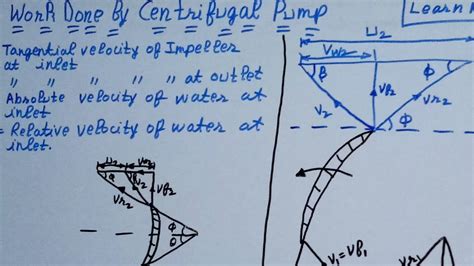 Work Done By Centrifugal Pump
Learn
Tangential velocity of Impeller
at inlet
" " " " at outlet
Absolute velocity of water at
inlet
= Relative velocity of water at
inlet.
u2
Vw2
β
Φ
V2
Vf2
Vr2
Φ
Vr2
Vf2
Φ
θ
V1 = Vf1